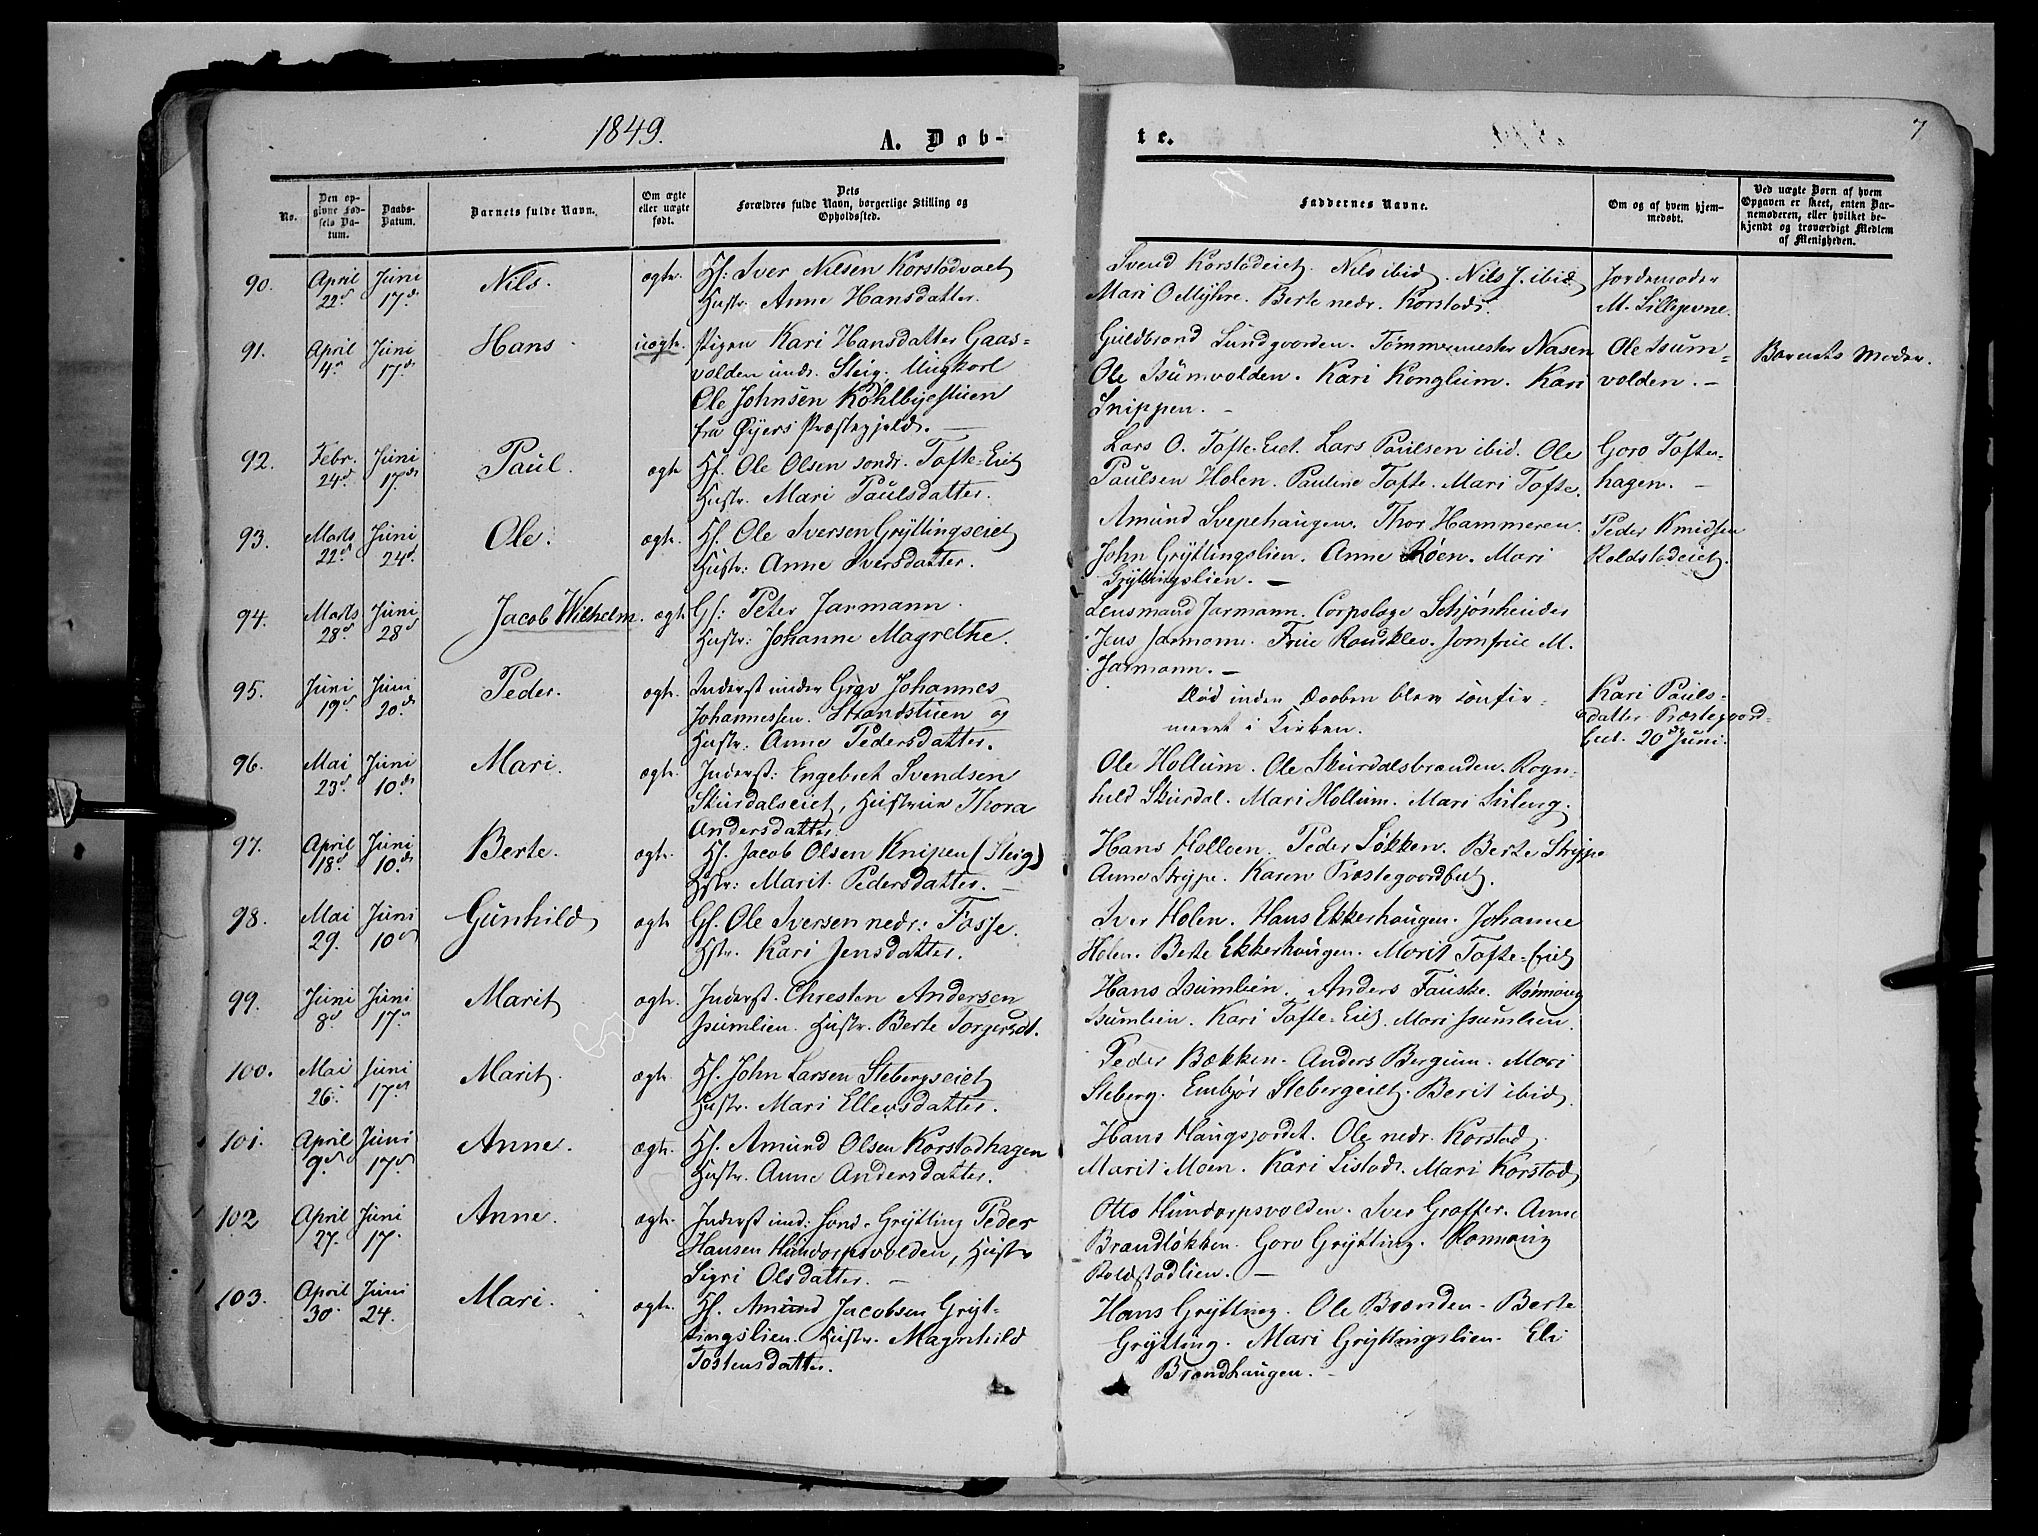 1849.
A. Døb-
te.
7
No.
Den op-
givne Fød-
sels Da-
tum.
Daabs-
Datum.
Barnets fulde Navn.
Om ægte
eller uægte
født.
Dets
Forældres fulde Navn, borgerlige Stilling og
Opholdssted.
Faddernes Navne.
Om og af hvem hjem-
medøbt.
Ved uægte Børn af hvem
Opgaven er skeet, enten Bar-
nemoderen, eller hvilket be-
kjendt og troværdigt Medlem
af Menigheden.
90. April 22d Juni 17d. Nils. ægte. Hf: Iver Nilsen Korstadvoet
Hustr. Anne Hansdatter.
Svend Korstadeiet. Nils ibid. Nils J. ibid
Mari O Myhre. Berte nedr. Korstad.
Jordemoder
M. Lillegvne.
91. April 4d Juni 17d. Hans uægte. Pigen Kari Hansdatter Gaas-
volden undr. Steig. Ungkarl
Ole Johnsen Kohlbyestuen
fra Øyers Præstegjeld. —
Guldbrand Sundgaarden. Tømmermester Nasen
Ole Isumvolden. Kari Konglum. Kari
Snippen. —
Ole Isum-
volden. —
Barnets Moder.
92. Febr. 24d Juni 17d. Paul. ægte Hf. Ole Olsen sondr. Tofte-Eiet
Hustr. Mari Paulsdatter.
Lars O. Tofte-Eiet. Lars Paulsen ibid. Ole
Paulsen Holen. Pauline Tofte. Mari Tofte.
Goro Tofte-
hagen. —
93. Marts 22d Juni 24d. Ole. ægte. Hf. Ole Iversen Gryttingseiet
Hustr: Anne Iversdatter.
Amund Svepehaugen. Thor Hammeren.
John Gryttingslien. Anne Røen. Mari
Gryttingslien. —
Peder Knudsen
Roldstadeiet.
94. Marts 28d Juni 28d Jacob Wilhelm. ægte Gf: Peter Jarmann.
Hustr: Johanne Magrethe.
Lensmand Jarmann. Corpslæge Schjønheider
Jens Jarmann. Frue Randklev. Jomfrue M.
Jarmann. —
95. Juni 19d Juni 20d Peder. ægte. Inderst under Grav Johannes
Johannessen. Strandstuen og
Hustr: Anne Pedersdatter.
Død inden Daaben blev confir-
meret i Kirken.
Kari Pauls-
datter Præstegaard-
eiet. 20d Juni.
96. Mai 23d Juni 10d. Mari. ægte. Inderst: Engebret Svendsen
Skurdalseiet, Hustrue Thora
Andersdatter.
Ole Hollum. Ole Skurdalsbrænden. Rogn-
hild Skurdal. Mari Hollum. Mari Sileng.
97. April 18d Juni 10d. Berte. ægte. Hf. Jacob Olsen Knipen (Steig)
Hstr: Marit Pedersdatter. —
Hans Holloen. Peder Løkken. Berte Skyppe
Anne Skyppe. Karen Præstegaardseiet.
98. Mai 29. Juni 10d Gunhild ægte Gf. Ole Iversen nedr: Fosse.
Hstr. Kari Jensdatter.
Iver Holen. Hans Ekkerhaugen. Johanne
Holen. Berte Ekkerhaugen. Marit Tofte-Eiet
99. Juni 8d Juni 17d Marit ægte. Inderst. Chresten Andersen
Isumlien. Hustr. Berte Torgersdt.
Hans Isumlien. Anders Fauske. Rønnaug
Isumlien. Kari Tofte-Eiet. Mari Isumlien.
100. Mai 26. Juni 17d Marit. ægte. Hf. John Larsen Stebergseiet
Hustr. Mari Ellevsdatter.
Peder Bækken. Anders Bergum. Mari
Steberg. Embjør Stebergeiet. Berit ibid.
101. April 9d Juni 17d Anne. ægte. Hf. Amund Olsen Korstadhagen
Hustr. Anne Andersdatter.
Hans Haugsjordet. Ole nedr. Korstad.
Marit Moen. Kari Listad. Mari Korstad
102 April 27. Juni 17. Anne. ægte. Inderst und: Sønd. Grytting Peder
Hansen Hundorpsvolden, Hustr.
Sigri Olsdatter. —
Otto Hundorpsvolden. Iver Graffer. Anne
Brandløkken. Goro Grytting. Rønnaug
Roldstadlien. —
103. April 30. Juni 24. Mari. ægte. Hf. Amund Jacobsen Gryt-
tingslien. Hustr. Magnhild
Tostensdatter.
Hans Grytting. Ole Brænden. Berte
Grytting. Mari Gryttingslien. Eli
Brandhaugen. —